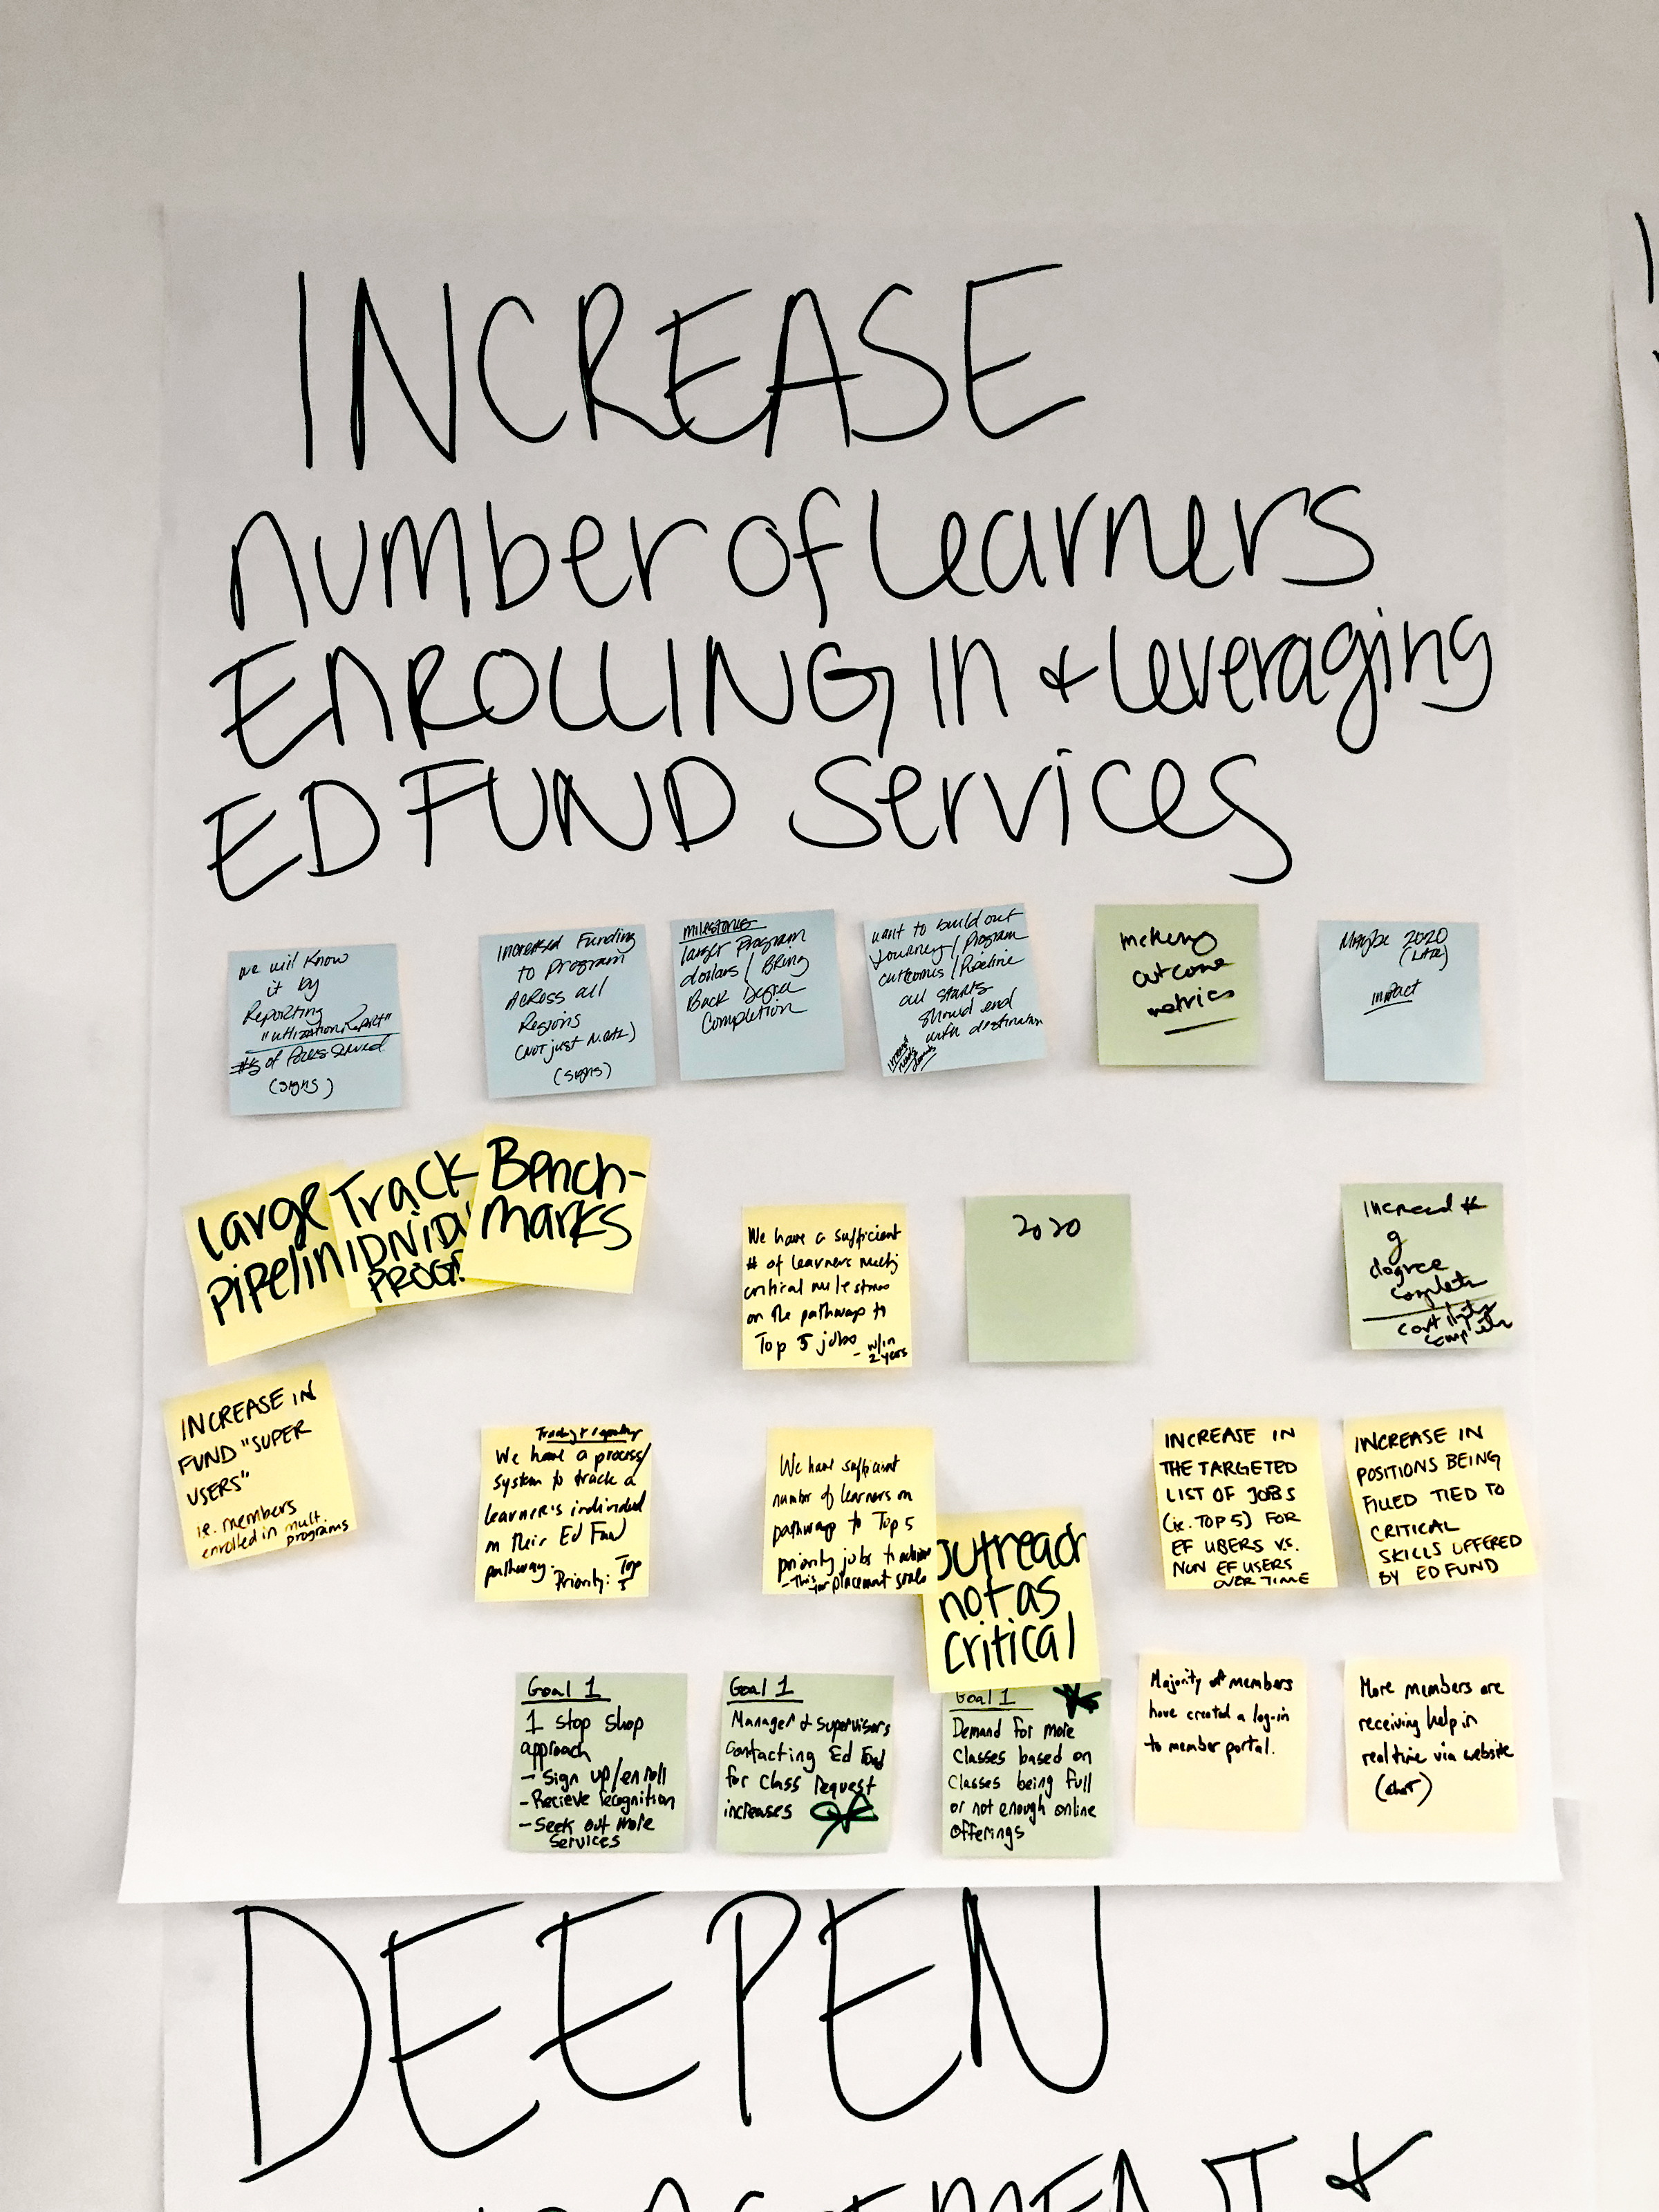 INCREASE
number of learners
ENROLLING in & leveraging
ED FUND services
we will know
it by
Reporting
"utilization Report"
#s of folks served
(signs)
Increased Funding
to program
Across all
Regions
(NOT just N.CAL)
(signs)
milestones
larger Program
dollars / Bring
Back Degree
Completion
want to build out
Journey / Program
outcomes / Pipeline
all starts
should end
with destination
outcome
metrics
Maybe 2020
(LATE)
impact
large
pipelin
Track
IDNIDU
PROG
Bench-
marks
We have a sufficient
# of learners meeting
critical milestones
on the pathway to
Top 5 jobs
- w/in
2 years
2020
Increased #
of
degree
complete
complete
INCREASE IN
FUND "SUPER
USERS"
ie. members
enrolled in mult.
programs
Tracking & reporting
We have a process/
system to track a
learner's individual
on their Ed Fund
pathway. Priority: Top
5
We have sufficient
number of learners on
pathway to Top 5
priority jobs to achieve
- This for placement goals
outreach
not as
critical
INCREASE IN
THE TARGETED
LIST OF JOBS
(ie. TOP 5) FOR
EF USERS VS.
NON EF USERS
OVER TIME
INCREASE IN
POSITIONS BEING
FILLED TIED TO
CRITICAL
SKILLS OFFERED
BY ED FUND
Goal 1
1 stop shop
approach
- Sign up/enroll
- Recieve recognition
- Seek out more
services
Goal 1
Manager & supervisors
contacting Ed Fund
for class request
increases
Goal 1
Demand for more
classes based on
classes being full
or not enough online
offerings
Majority of members
have created a log-in
to member portal.
More members are
receiving help in
real time via website
(chat)
DEEPEN